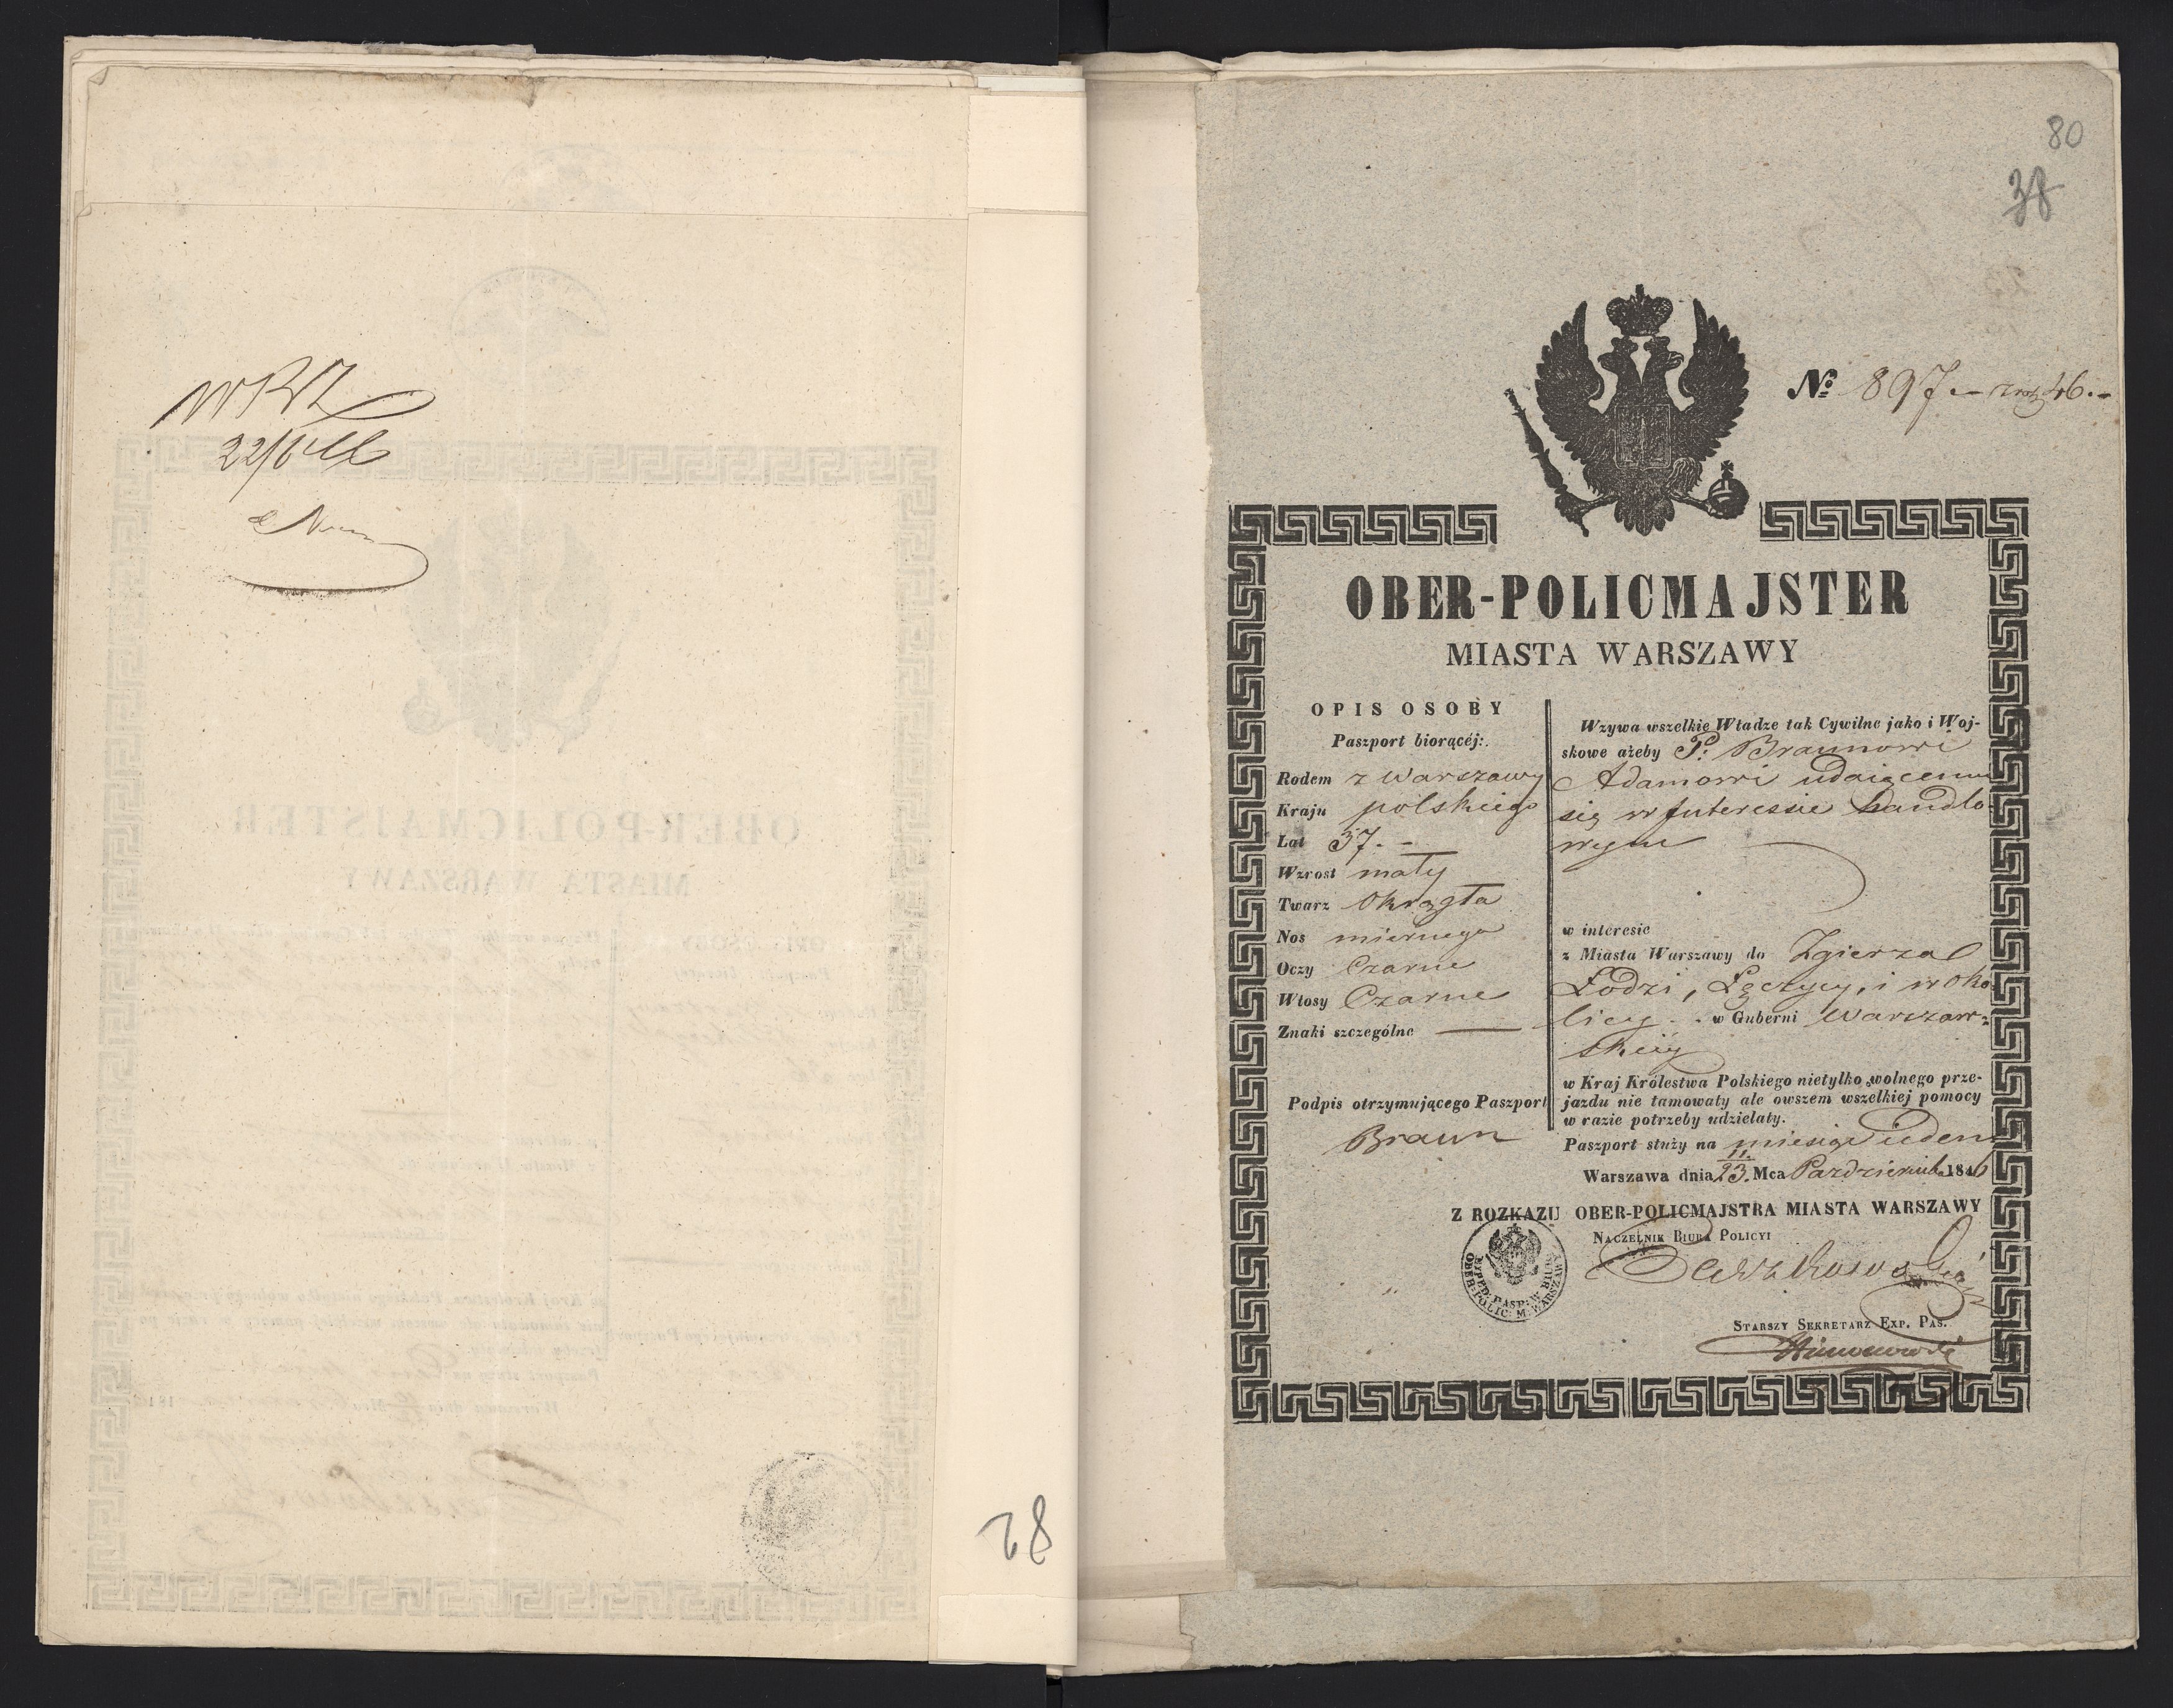 22/6 46
78
80
38
№ 897 – 46. –
OBER-POLICMAJSTER
MIASTA WARSZAWY
OPIS OSOBY
Paszport biorącéj:.
Rodem z Warszawy
Kraju polskiego
Lat 37. –
Wzrost mały
Twarz Okrągła
Nos miernego
Oczy Czarne
Włosy Czarne
Znaki szczególne —
Podpis otrzymującego Paszport
Braun
Wzywa wszelkie Władze tak Cywilne jako i Woj-
skowe ażeby P. Braunowi
Adamowi udaiącemu
się w Interessie handlo-
wym
w interesie
z Miasta Warszawy do Zgierza
Łodzi, Łęczycy, i w oko
licy w Guberni Warszaw-
skiéy
w Kraj Królestwa Polskiego nietylko wolnego prze-
jazdu nie tamowały ale owszem wszelkiej pomocy
w razie potrzeby udzielały.
Paszport służy na miesiąc ieden
Warszawa dnia 11/23. Mca Pazdziernika 1846
Z ROZKAZU OBER-POLICMAJSTRA MIASTA WARSZAWY
NACZELNIK BIURA POLICYI
EXPED: PASP: W BIURZE
OBER-POLIC: M. WARSZAWY
STARSZY SEKRETARZ EXP. PAS.